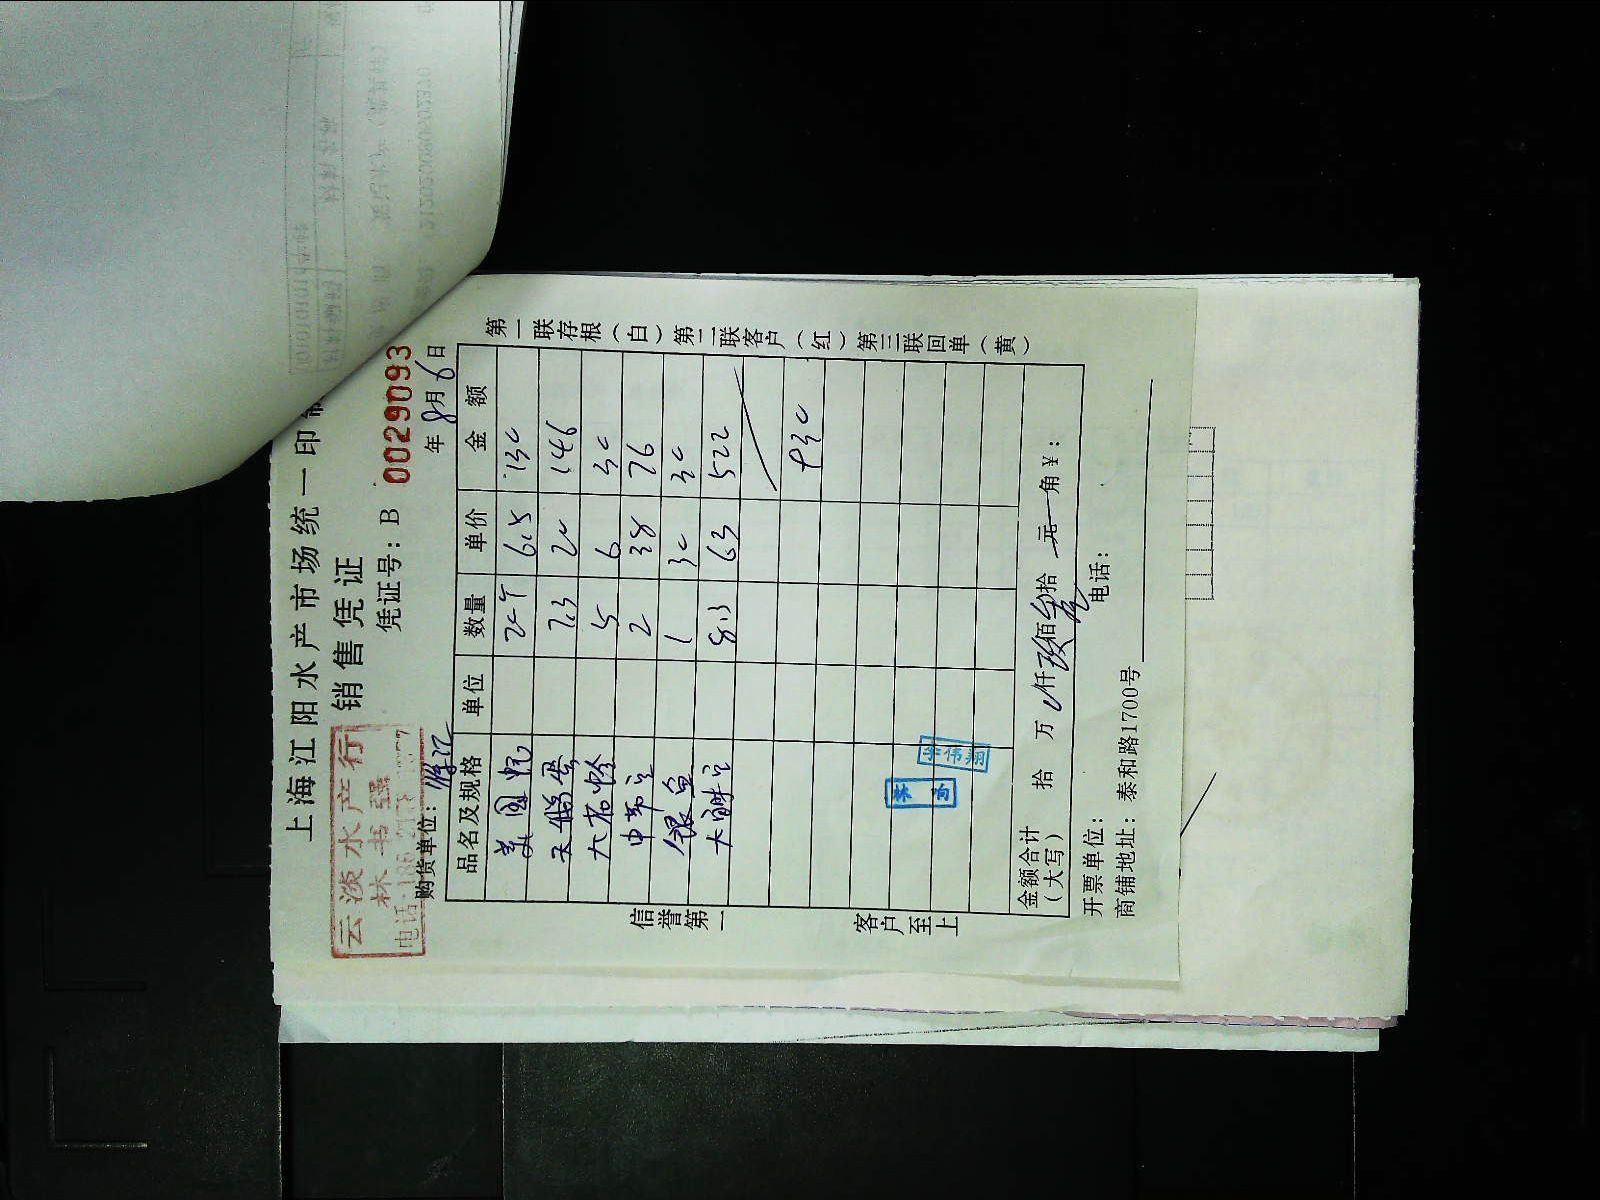 上海江阳水产市场统一印制
销售凭证
云淡水产行
林书强
电话:
凭证号：B 0029093
购货单位：
年8月6日
品名及规格 单位 数量 单价 金额
美国 6.5 130
天鹅蛋 7.3 20 146
大石蛤 5 6 30
2 38 76
银鱼 1 30 30
大 8.3 63 522
930
金额合计（大写） 拾 万 仟 玖佰 叁拾 元 角 ￥：
开票单位： 电话：
商铺地址：泰和路1700号
信誉第一 客户至上
第一联存根（白）第二联客户（红）第三联回单（黄）